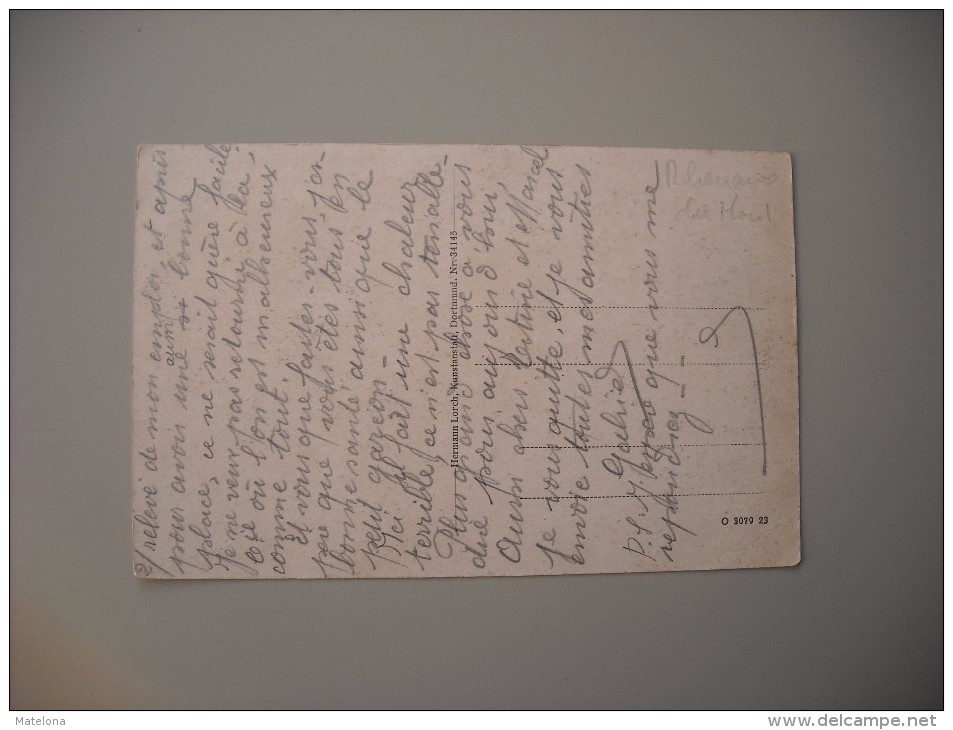 2/ relevé de mon emploi et après
pour avoir une aussi bonne
place, ce ne serait guère facile
je ne veux pas retourné à la
cie où l'on est malheureux
comme tout.
Et vous que faites-vous, j'es-
père que vous êtes tous en
bonne santé ainsi que le
petit garçon -
Ici il fait une chaleur
terrible, ce n'est pas tenable -
Plus grand chose à vous
dire pour aujourd'hui,
Chers et Marcel
je vous quitte et je vous
envoie toutes mes amitiés
Gabriel
P.S. J'espère que vous me
répondrez -
Hermann Lorch, Kunstanstalt, Dortmund. Nr. 34145
O 3079 23
Rhénanie
du Nord
Matelona
www.delcampe.net